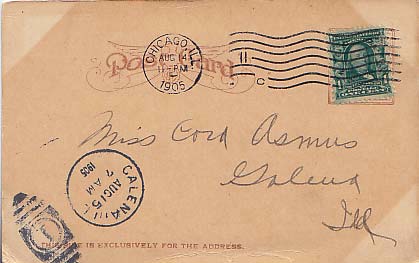 CHICAGO, ILL.
AUG 14
11-PM
1905
Post Card
C
Miss Cora Asmus
Galena
Ill
GALENA ILL.
AUG 15
7 AM
1905
1
THIS SIDE IS EXCLUSIVELY FOR THE ADDRESS.